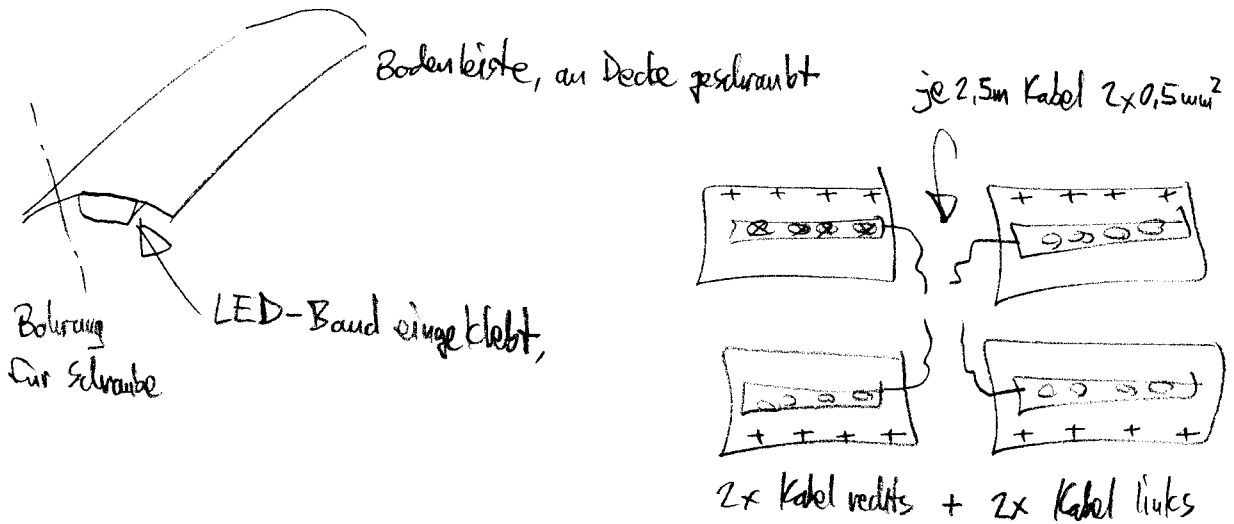 Bodenleiste, an Decke geschraubt
je 2,5m Kabel 2x0,5mm²
Bohrung
für Schraube
LED-Band eingeklebt,
+ + + +
+ + + +
+ + + +
+ + + +
2x Kabel rechts + 2x Kabel links